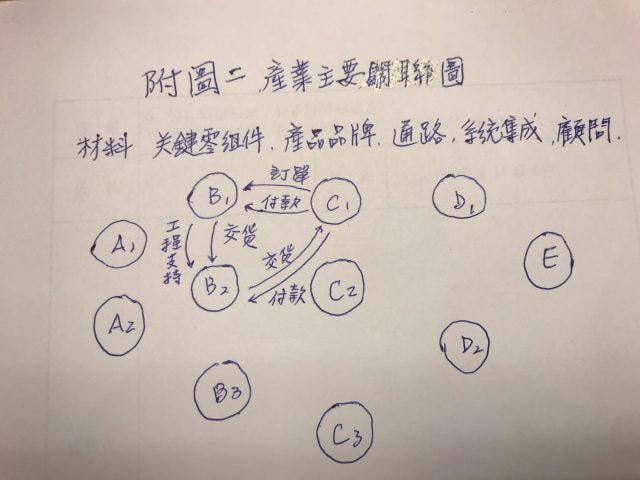 附圖二 產業主要關聯圖
材料 关鍵零组件. 產品品牌. 通路, 系統集成, 顧問.
訂單
付款
B1
C1
D1
A1
工程支持
交货
交货
E
B2
付款
C2
A2
D2
B3
C3